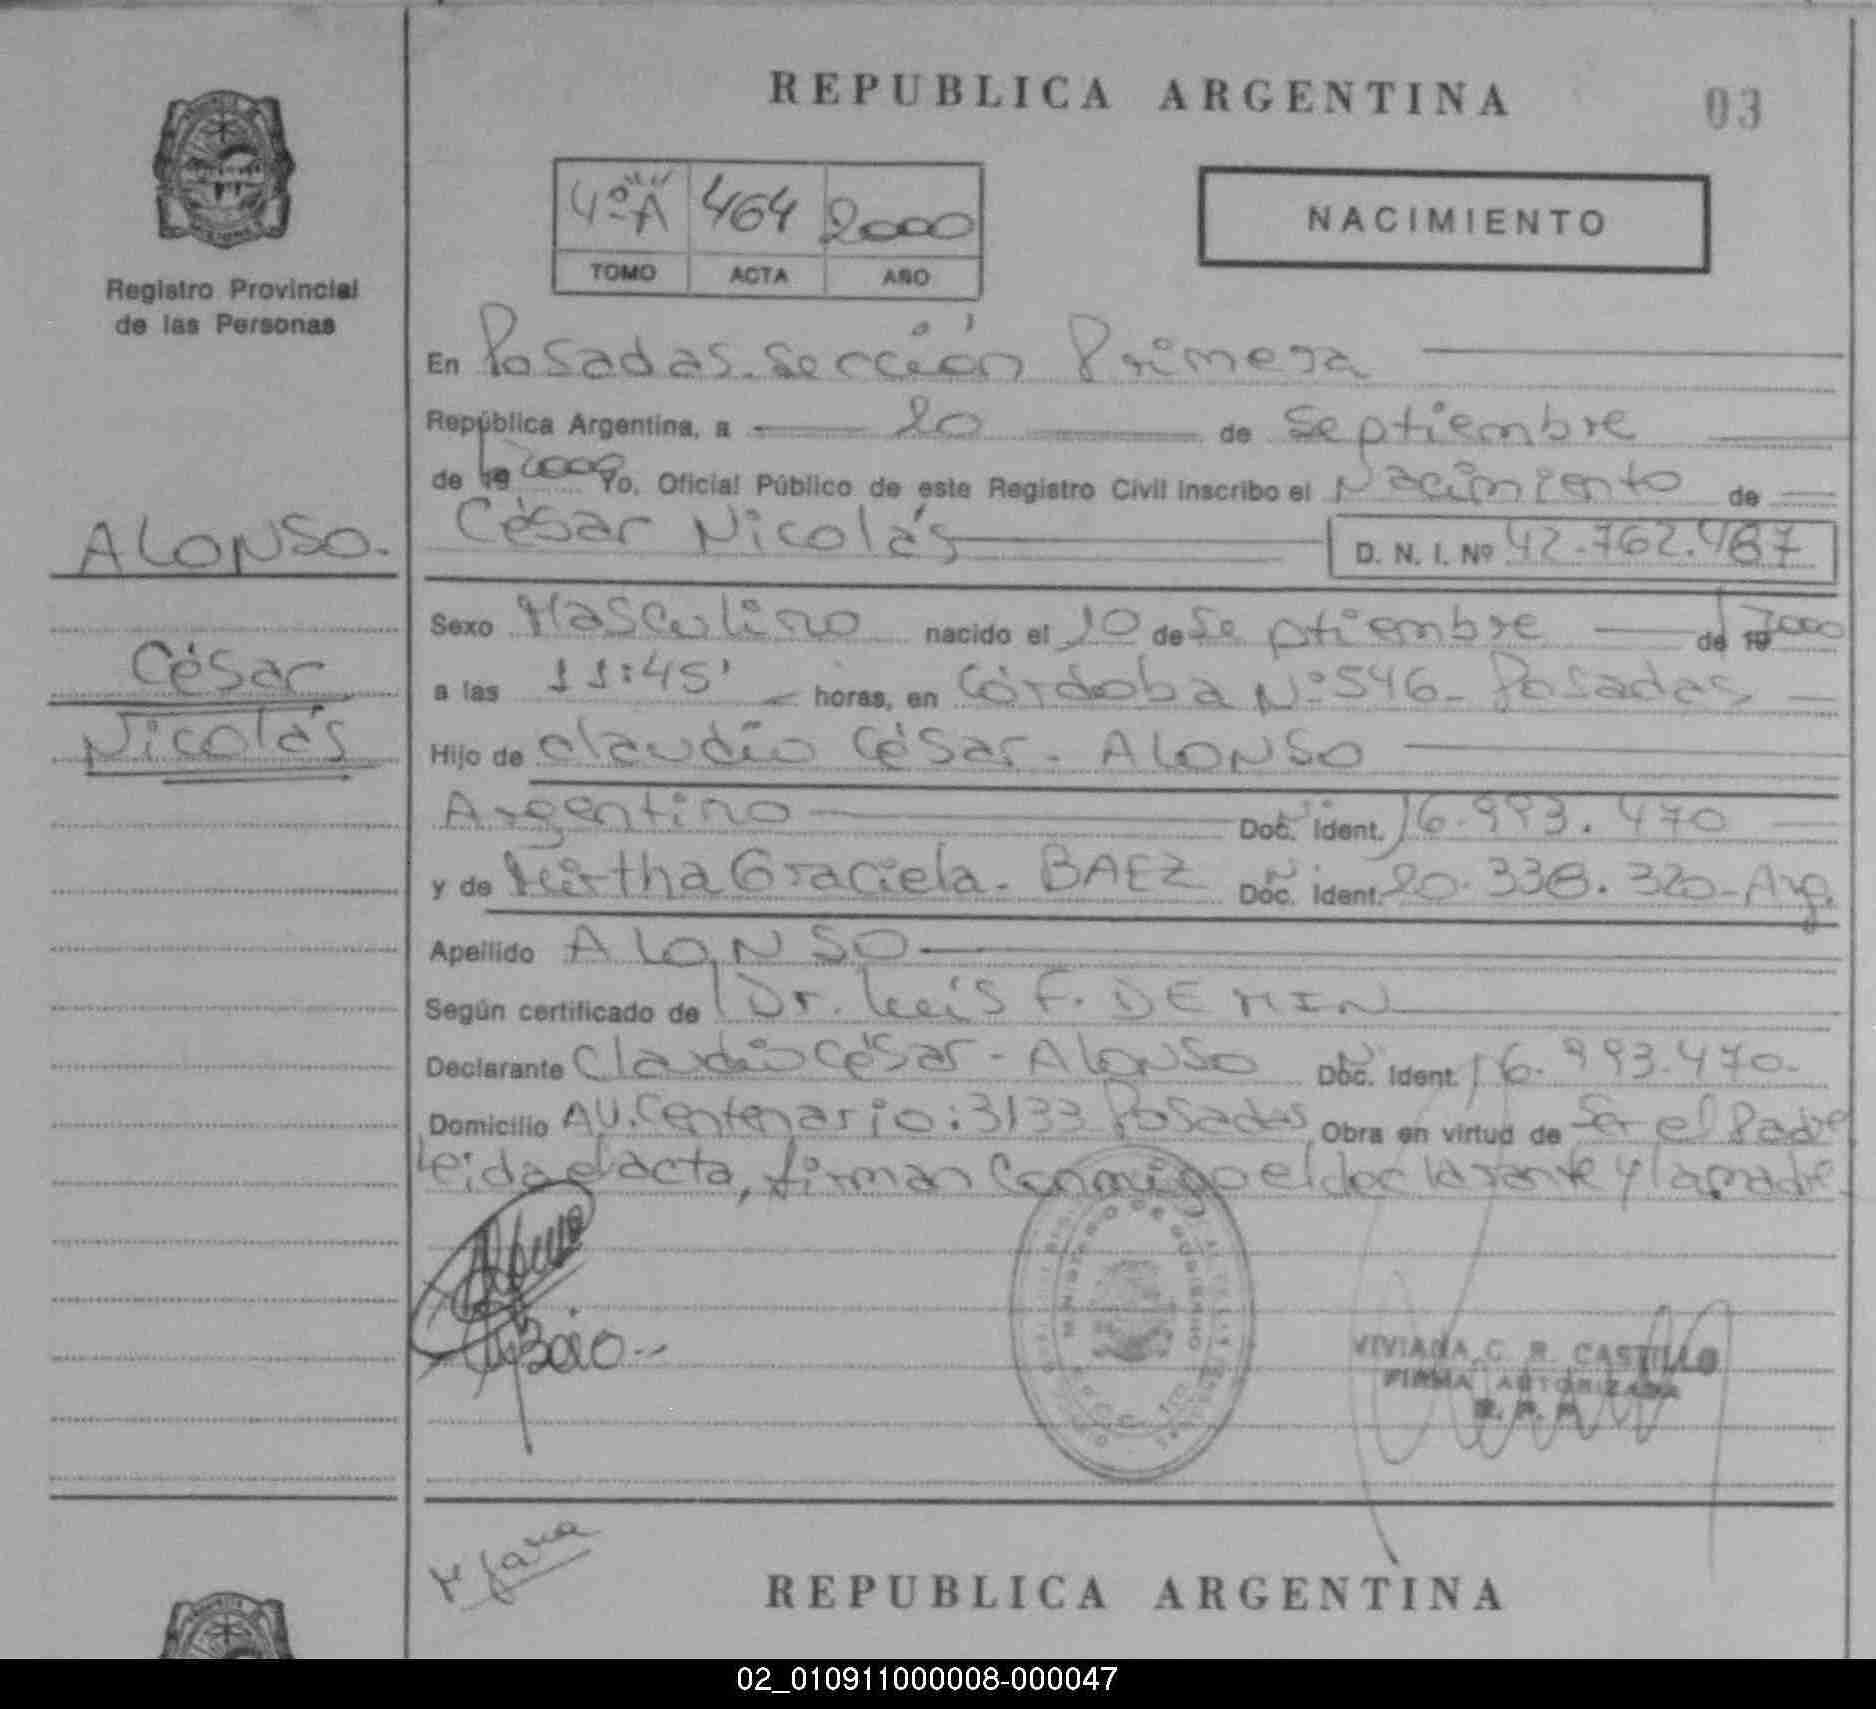 REPUBLICA ARGENTINA
03
4º "A" 464 2000
TOMO ACTA AÑO
NACIMIENTO
Registro Provincial
de las Personas
ALONSO.
César
Nicolás
En Posadas. Sección Primera
República Argentina, a 20 de Septiembre
de 19 2000 Yo, Oficial Público de este Registro Civil inscribo el Nacimiento de
César Nicolás D. N. I. Nº 42.762.467
Sexo Masculino nacido el 10 de Septiembre de 19 2000
a las 11:45' horas, en Córdoba Nº 546 - Posadas
Hijo de Claudio César - ALONSO
Argentino Doc. Ident. 16.993.470
y de Mirtha Graciela - BAEZ Doc. Ident. 20.338.320 - Arg.
Apellido ALONSO
Según certificado de Dr. Luis F. DEMIN
Declarante Claudio César - Alonso Doc. Ident. 16.993.470-
Domicilio AV. Centenario: 3133 Posadas Obra en virtud de Ser el Padre
Leida el acta, firman Conmigo el declarante y la madre-
MINISTERIO DE GOBIERNO
VIVIANA C. R. CASTILLO
FIRMA AUTORIZADA
R. P. P.
REPUBLICA ARGENTINA
02_010911000008-000047